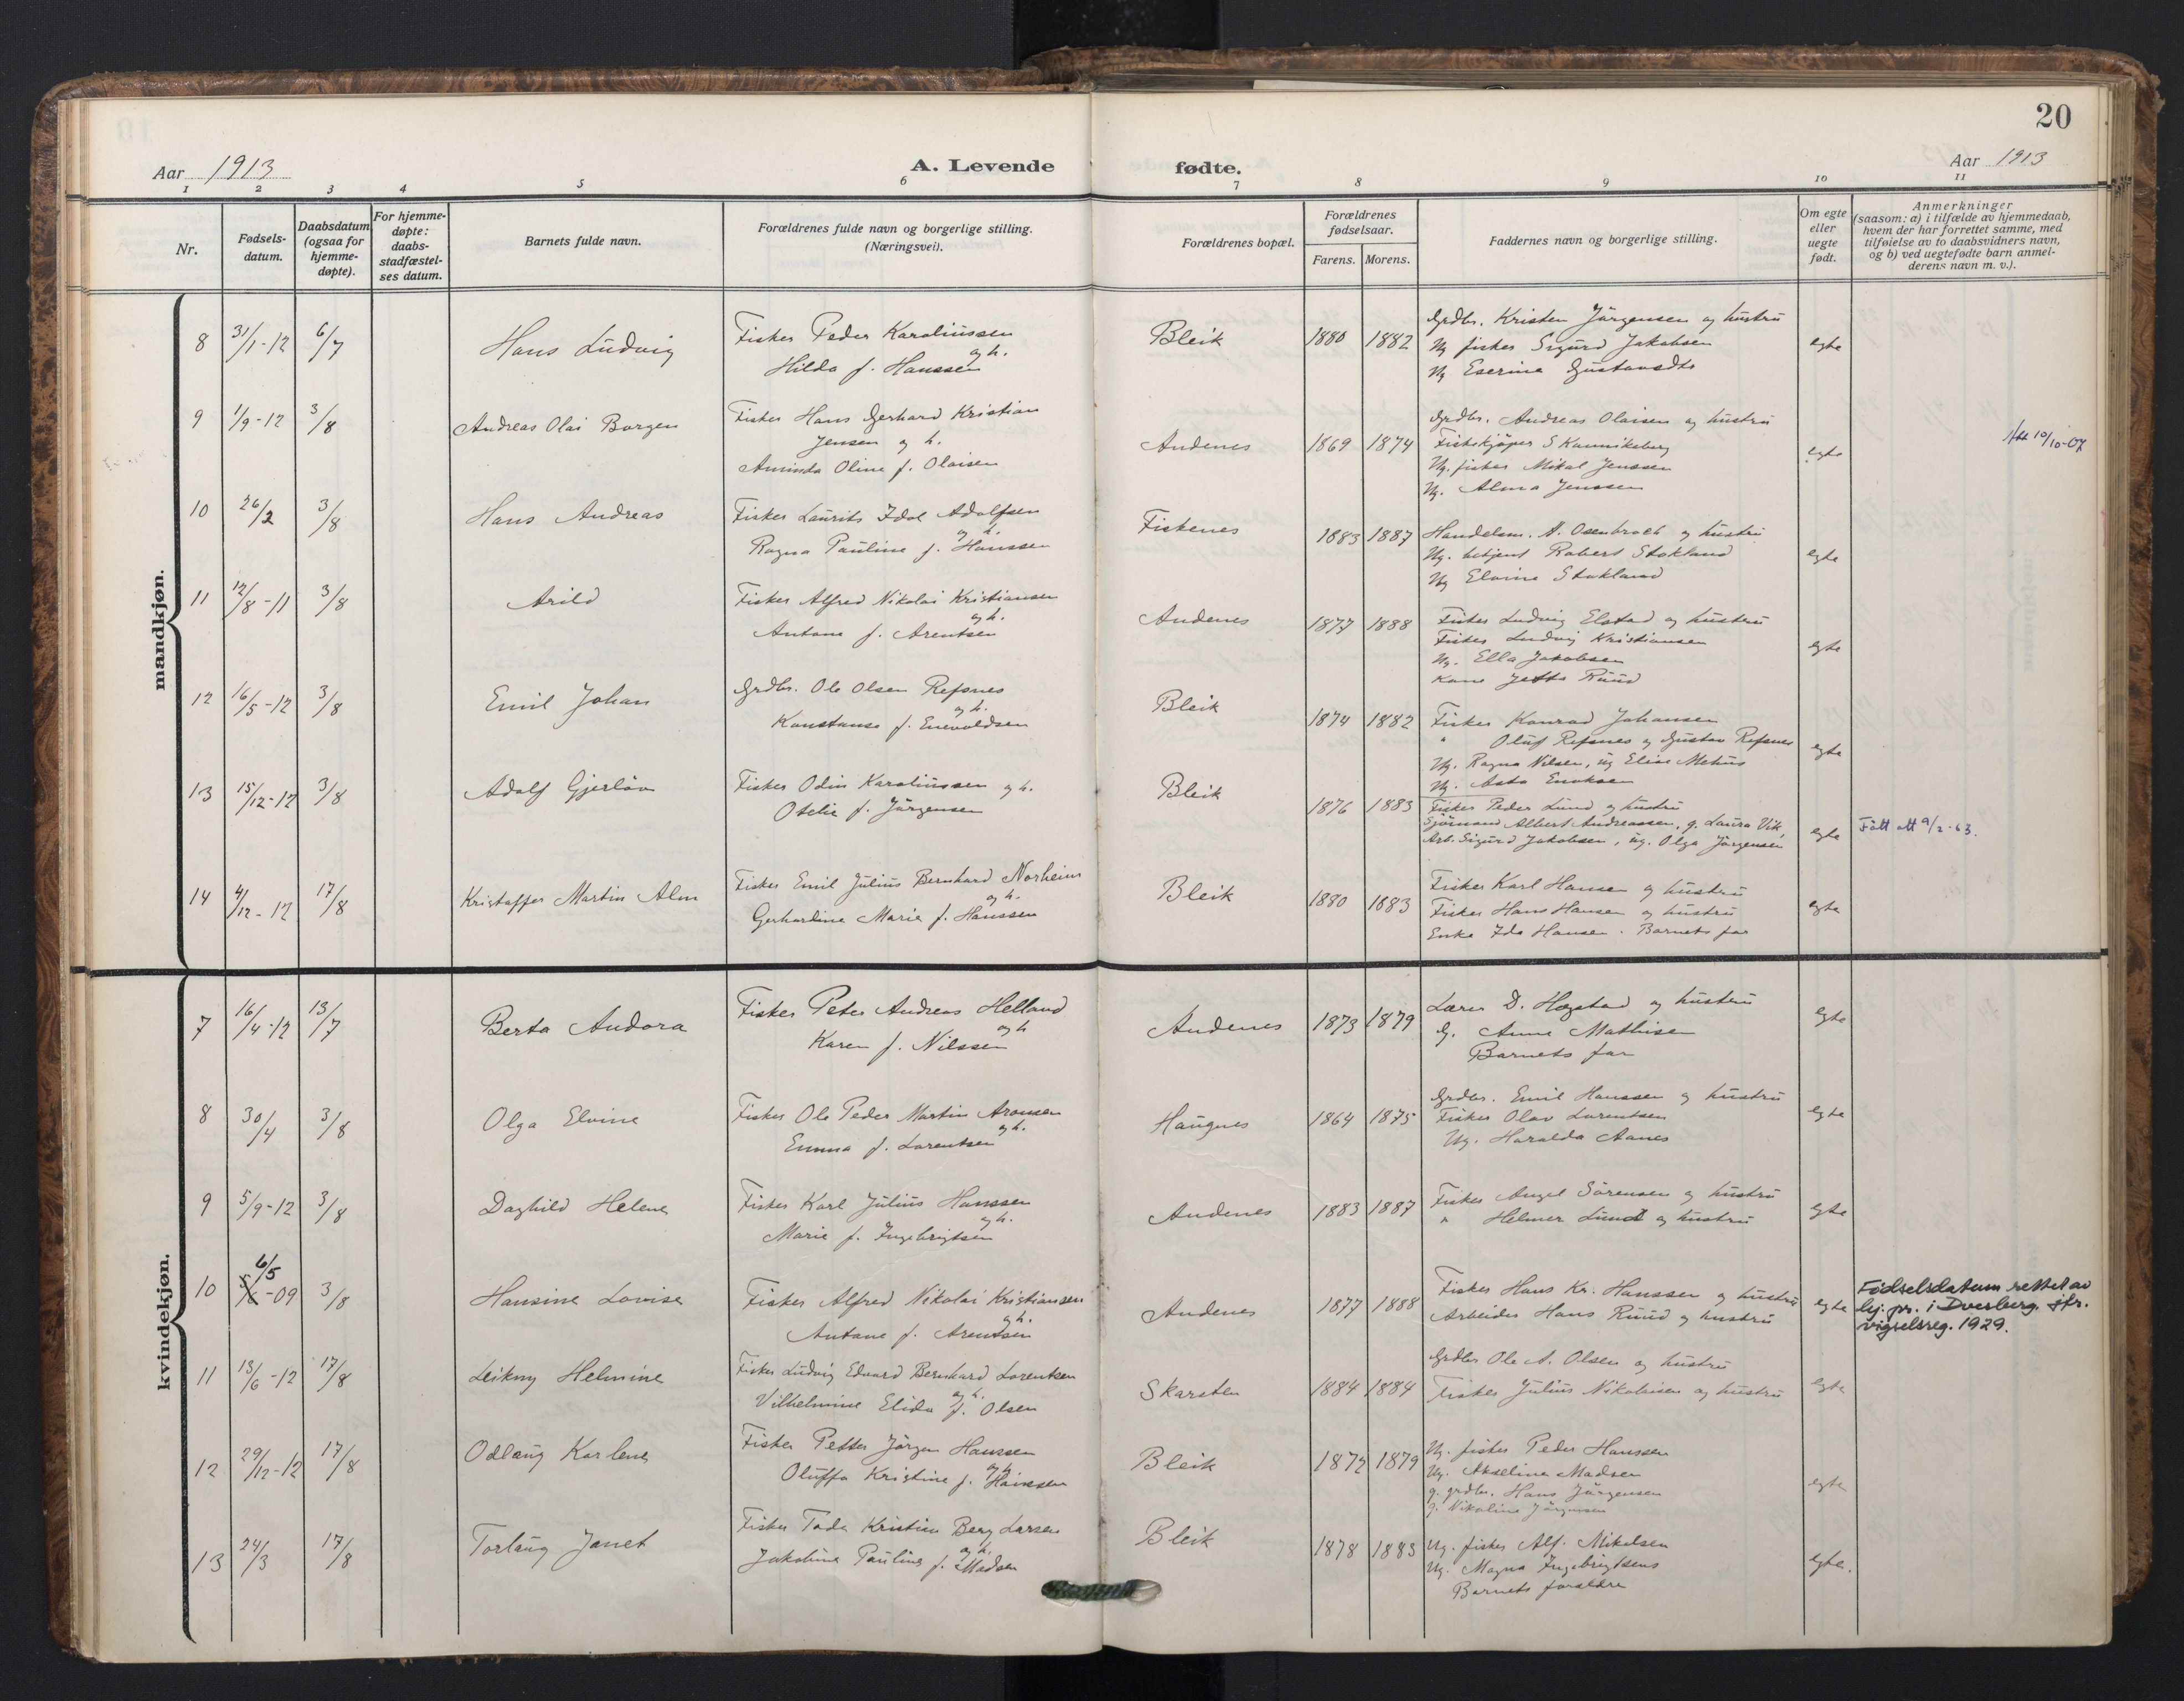 20
Aar 1913
A. Levende fødte.
Aar 1913
1 2 3 4 5 6 7 8 9 10 11
Nr.
Fødsels-
datum.
Daabsdatum
(ogsaa for
hjemme-
døpte).
For hjemme-
døpte:
daabs-
stadfæstel-
ses datum.
Barnets fulde navn.
Forældrenes fulde navn og borgerlige stilling.
(Næringsvei).
Forældrenes bopæl.
Forældrenes
fødselsaar.
Farens. Morens.
Faddernes navn og borgerlige stilling.
Om egte
eller
uegte
født.
Anmerkninger
(saasom: a) i tilfælde av hjemmedaab,
hvem der har forrettet samme, med
tilføielse av to daabsvidners navn,
og b) ved uegtefødte barn anmel-
derens navn m. v.).
mandkjøn.
8 31/1-12 6/7 Hans Ludvig
Fisker Peder Karoliussen
og h.
Hilda f. Hanssen
Bleik 1880 1882
Grdbr. Kristen Jørgensen og hustru
Ug fisker Sigurd Jakobsen
Ug Eserine Gustavsdtr
egte
9 1/9-12 3/8 Andreas Olai Borgen
Fisker Hans Gerhard Kristian
Jensen og h.
Aminda Oline f. Olaisen
Andenes 1869 1874
Grdbr. Andreas Olaisen og hustru
Fiskekjøper S Kannikeberg
Ug. fisker Mikal Jenssen
Ug. Alma Jenssen
egte
Att 10/10-07
10 26/2 3/8 Hans Andreas
Fisker Laurits Idol Adolfsen
og h.
Ragna Pauline f. Hanssen
Fiskenes 1883 1887
Handelsm. A. Osenbroch og hustru
Ug. betjent Robert Stokland
Ug Elvine Stokland
egte
11 12/8-11 3/8 Arild
Fisker Alfred Nikolai Kristiansen
og h.
Antone f. Arentsen
Andenes 1877 1888
Fisker Ludvig Elstad og hustru
Fisker Ludvig Kristiansen
Ug. Ella Jakobsen
Kone Jette Ruud
egte
12 16/5-12 3/8 Emil Johan
Grdbr. Ole Olsen Refsnes
og h.
Konstanse f. Enevoldsen
Bleik 1874 1882
Fisker Konrad Johansen
" Oluf Refsnes og Gustav Refsnes
Ug. Ragna Nilsen, ug Elias Metus
Ug. Asta Enoksen
egte
13 15/12-12 3/8 Adolf Gjerløw
Fisker Odin Karoliussen og h.
Otelie f. Jørgensen
Bleik 1876 1883
Fisker Peder Lund og hustru
Sjømand Albert Andreassen, g. Laura Vik,
Arb. Sigurd Jakobsen, ug. Olga Jørgensen
egte
Fått att 9/2-63.
14 4/12-12 17/8 Kristoffer Martin Alm
Fisker Emil Julius Bernhard Norheim
og h.
Gerhardine Marie f. Hanssen
Bleik 1880 1883
Fisker Karl Hansen og hustru
Fisker Hans Hansen og hustru
Enke Ida Hansen. Barnets far
egte
kvindekjøn.
7 16/4-12 13/7 Berta Andora
Fisker Peter Andreas Helland
og h
Karen f. Nilssen
Andenes 1873 1879
Lærer D. Hogstad og hustru
G. Anne Mathisen
Barnets far
egte
8 30/4 3/8 Olga Elvine
Fisker Ole Peder Martin Aronsen
og h.
Emma f. Lorentsen
Haugnes 1864 1875
Grdbr. Emil Hanssen og hustru
Fisker Olav Lorentsen
Ug. Haralda Aanes
egte
9 5/9-12 3/8 Daghild Helene
Fisker Karl Julius Hanssen
og h.
Marie f. Ingebrigtsen
Andenes 1883 1887
Fisker Angel Sørensen og hustru
" Helmer Lund og hustru
egte
6/5
10 5/6-09 3/8 Hansine Lovise
Fisker Alfred Nikolai Kristiansen
og h.
Antone f. Arentsen
Andenes 1877 1888
Fisker Hans Kr. Hanssen og hustru
Arbeider Hans Ruud og hustru
egte
Fødselsdatum rettet av
lj. pr. i Dverberg. jfr.
vigselsreg. 1929.
11 13/6-12 17/8 Leikny Helmine
Fisker Ludvig Edvard Bernhard Lorentsen
og h.
Vilhelmine Elida f. Olsen
Skarsten 1884 1884
Grdbr Ole A. Olsen og hustru
Fisker Julius Nikolaisen og hustru
egte
12 29/12-12 17/8 Odlaug Karlene
Fisker Petter Jørgen Hanssen
og h
Oluffa Kristine f. Hanssen
Bleik 1872 1879
Ug. fisker Peder Hanssen
Ug. Akseline Madsen
g. grdbr. Hans Jørgensen
g. Nikoline Jørgensen
egte
13 24/3 17/8 Torlaug Janet
Fisker Tode Kristian Berg Larsen
og h.
Jakobine Pauline f. Madsen
Bleik 1878 1883
Ug. fisker Alf. Mikelsen
Ug. Magna Ingebrigtsens
Barnets forældre
egte.